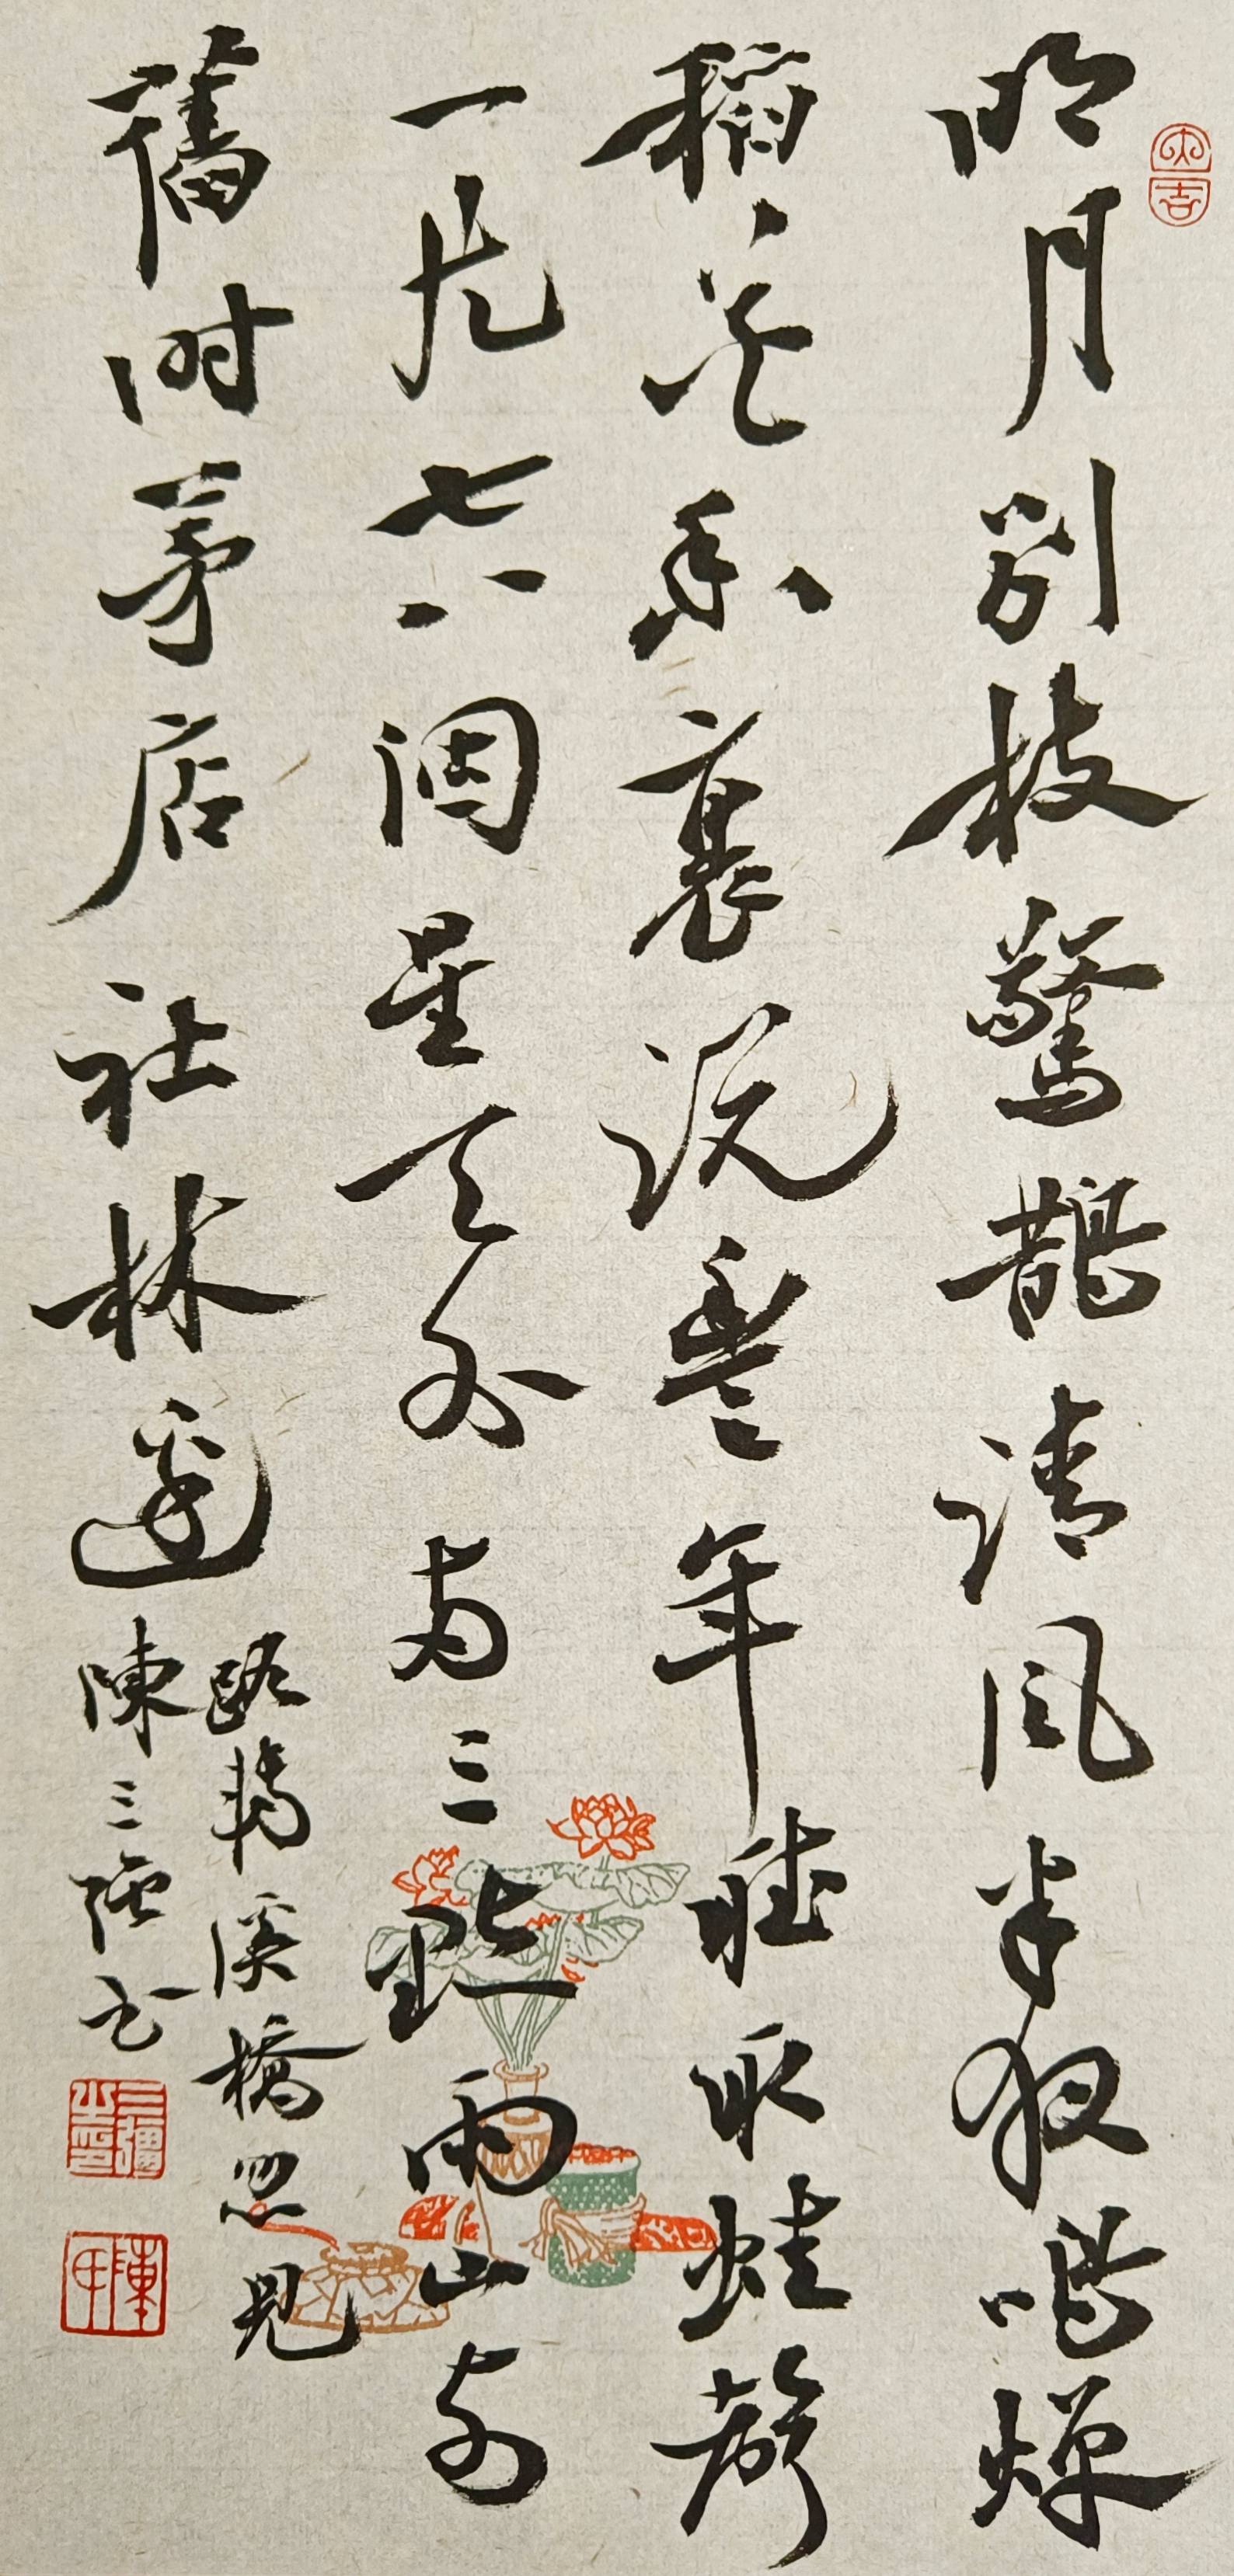 大吉
明月別枝驚鵲清風半夜鳴蟬
稻花香裏說豐年聽取蛙聲
一片七八個星天外兩三點雨山前
舊時茅店社林邊
路轉溪橋忽見
陳三强书
三彊之印